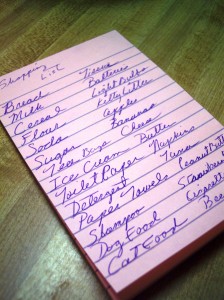 Shopping
List
Bread Tissue
Milk Batteries
Cereal Light Bulbs
Flour Kitty Litter
Soda Apples
Sugar Bananas
Tea Bags Cheese
Ice Cream Butter
Toilet Paper Napkins
Detergent Tuna
Paper Towels Peanut Butt
Shampoo
Dog Food
Cat Food